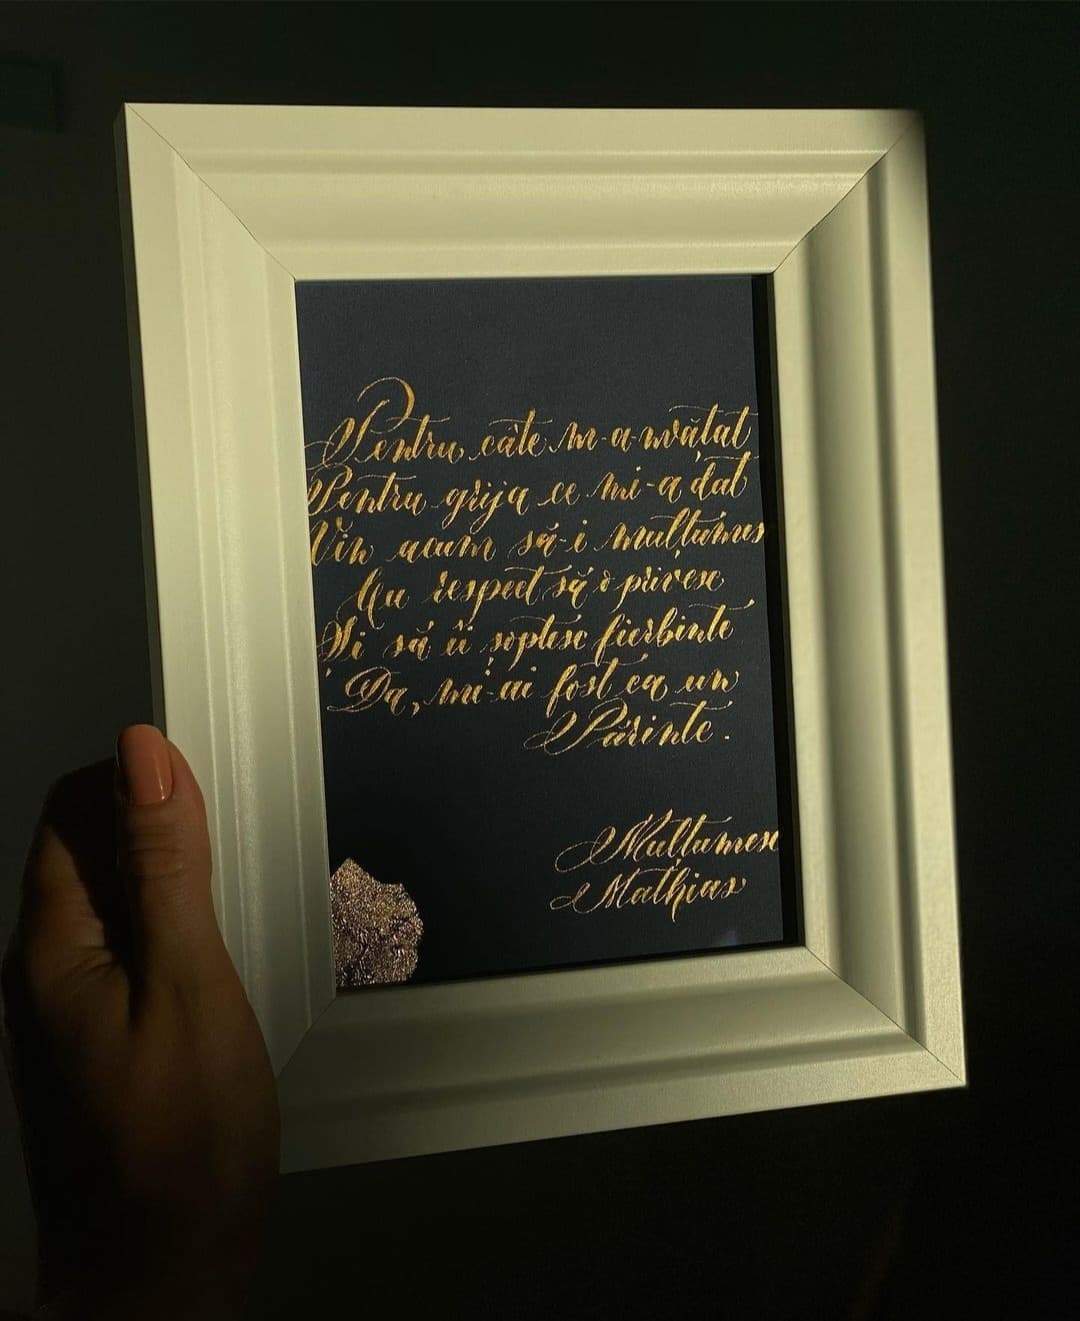 Pentru câte m-a-nvățat
Pentru grija ce mi-a dat
Vin acum să-i mulțumesc
Cu respect să o privesc
Și să îi șoptesc fierbinte
Da, mi-ai fost ca un
Părinte.
Mulțumesc
Mathias